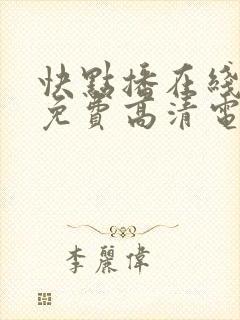 快點播在綫
免費高清電
李麗偉